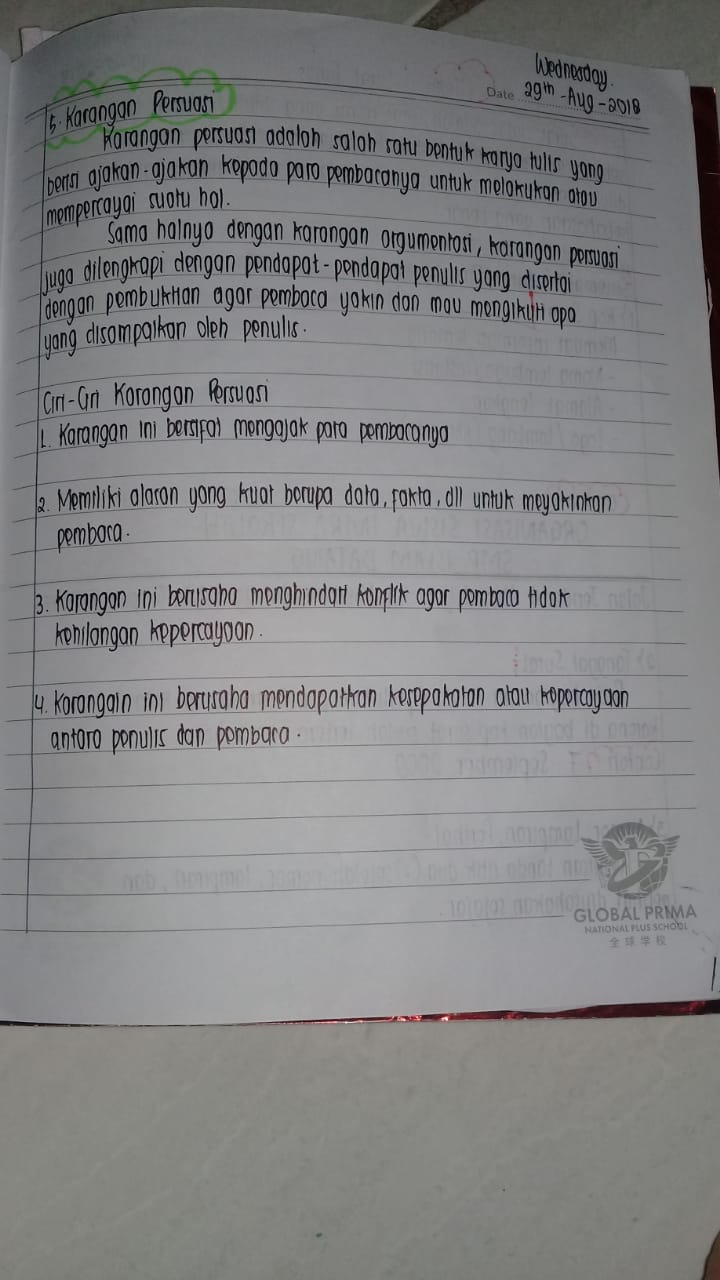 Wednesday
Date 29th - Aug - 2018
5. Karangan Persuasi
Karangan persuasi adalah salah satu bentuk karya tulis yang
berisi ajakan-ajakan kepada para pembacanya untuk melakukan atau
mempercayai suatu hal.
Sama halnya dengan karangan argumentasi, karangan persuasi
juga dilengkapi dengan pendapat-pendapat penulis yang disertai
dengan pembuktian agar pembaca yakin dan mau mengikuti apa
yang disampaikan oleh penulis.
Ciri-Ciri Karangan Persuasi
1. Karangan ini bersifat mengajak para pembacanya
2. Memiliki alasan yang kuat berupa data, fakta, dll untuk meyakinkan
pembaca.
3. Karangan ini berusaha menghindari konflik agar pembaca tidak
kehilangan kepercayaan.
4. Karangain ini berusaha mendapatkan kesepakatan atau kepercayaan
antara penulis dan pembaca.
GLOBAL PRIMA
NATIONAL PLUS SCHOOL
全球学校